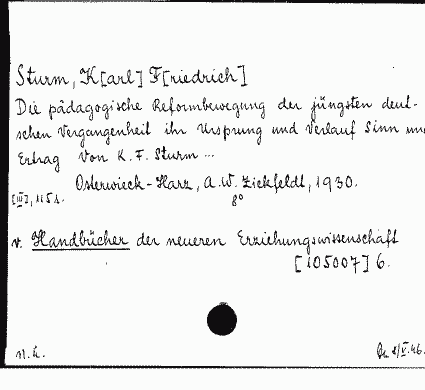 Sturm, K[arl] F[riedrich]
Die pädagogische Reformbewegung der jüngsten deut-
schen Vergangenheit ihr Ursprung und Verlauf Sinn und
Ertrag von K. F. Sturm ...
Osterwieck-Harz, A. W. Zickfeldt, 1930.
[III], 115 s. 8°
v. Handbücher der neueren Erziehungswissenschaft
[105007] 6.
N. L.